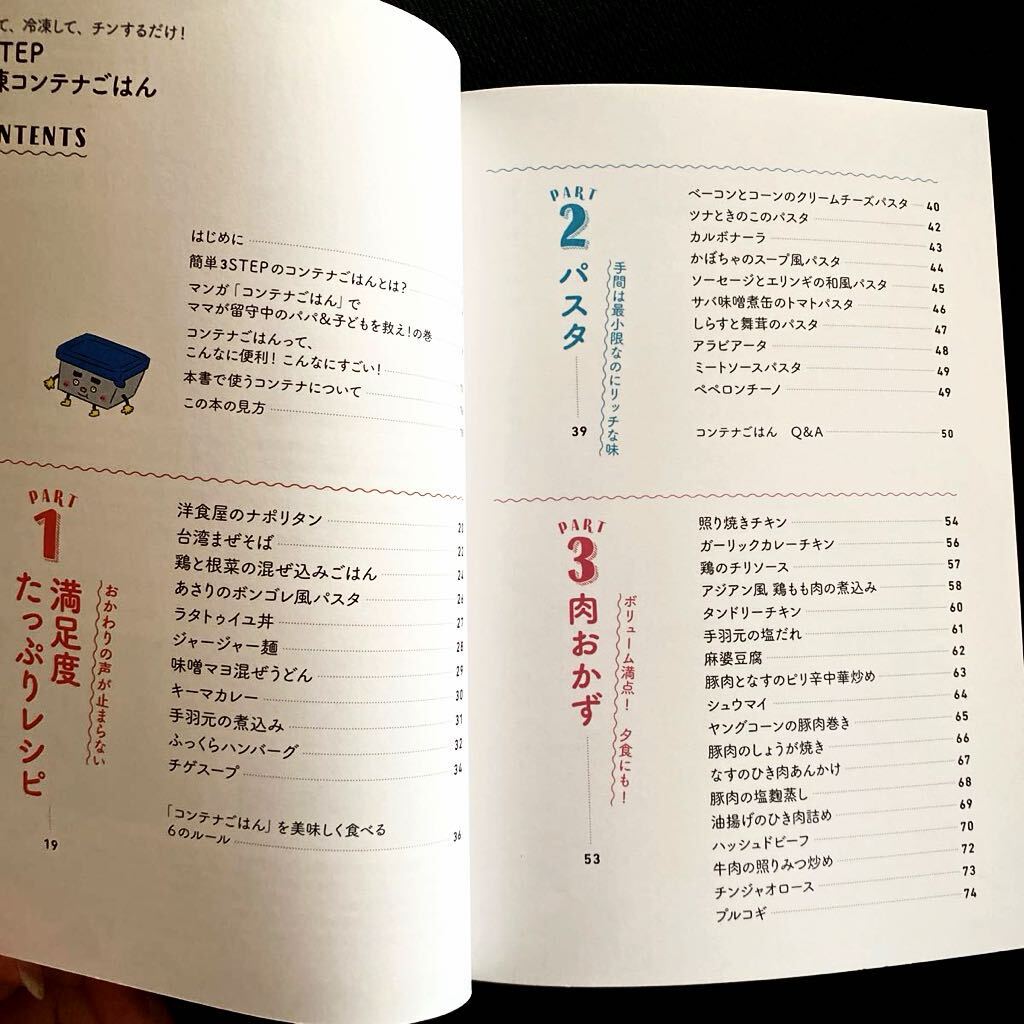 て、冷凍して、チンするだけ！
STEP
凍コンテナごはん
NTENTS
はじめに
簡単3STEPのコンテナごはんとは？
マンガ「コンテナごはん」で
ママが留守中のパパ&子どもを救え！の巻
コンテナごはんって、
こんなに便利！こんなにすごい！
本書で使うコンテナについて
この本の見方
PART
1
満足度
たっぷりレシピ
おかわりの声が止まらない
19
洋食屋のナポリタン
台湾まぜそば
鶏と根菜の混ぜ込みごはん 24
あさりのボンゴレ風パスタ 26
ラタトゥイユ丼 27
ジャージャー麺 28
味噌マヨ混ぜうどん 29
キーマカレー 30
手羽元の煮込み 31
ふっくらハンバーグ 32
チゲスープ 34
「コンテナごはん」を美味しく食べる
6のルール 36
PART
2
パスタ
手間は最小限なのにリッチな味
39
ベーコンとコーンのクリームチーズパスタ 40
ツナときのこのパスタ 42
カルボナーラ 43
かぼちゃのスープ風パスタ 44
ソーセージとエリンギの和風パスタ 45
サバ味噌煮缶のトマトパスタ 46
しらすと舞茸のパスタ 47
アラビアータ 48
ミートソースパスタ 49
ペペロンチーノ 49
コンテナごはん Q&A 50
PART
3
肉おかず
ボリューム満点！ 夕食にも！
53
照り焼きチキン 54
ガーリックカレーチキン 56
鶏のチリソース 57
アジアン風 鶏もも肉の煮込み 58
タンドリーチキン 60
手羽元の塩だれ 61
麻婆豆腐 62
豚肉となすのピリ辛中華炒め 63
シュウマイ 64
ヤングコーンの豚肉巻き 65
豚肉のしょうが焼き 66
なすのひき肉あんかけ 67
豚肉の塩麹蒸し 68
油揚げのひき肉詰め 69
ハッシュドビーフ 70
牛肉の照りみつ炒め 72
チンジャオロース 73
プルコギ 74